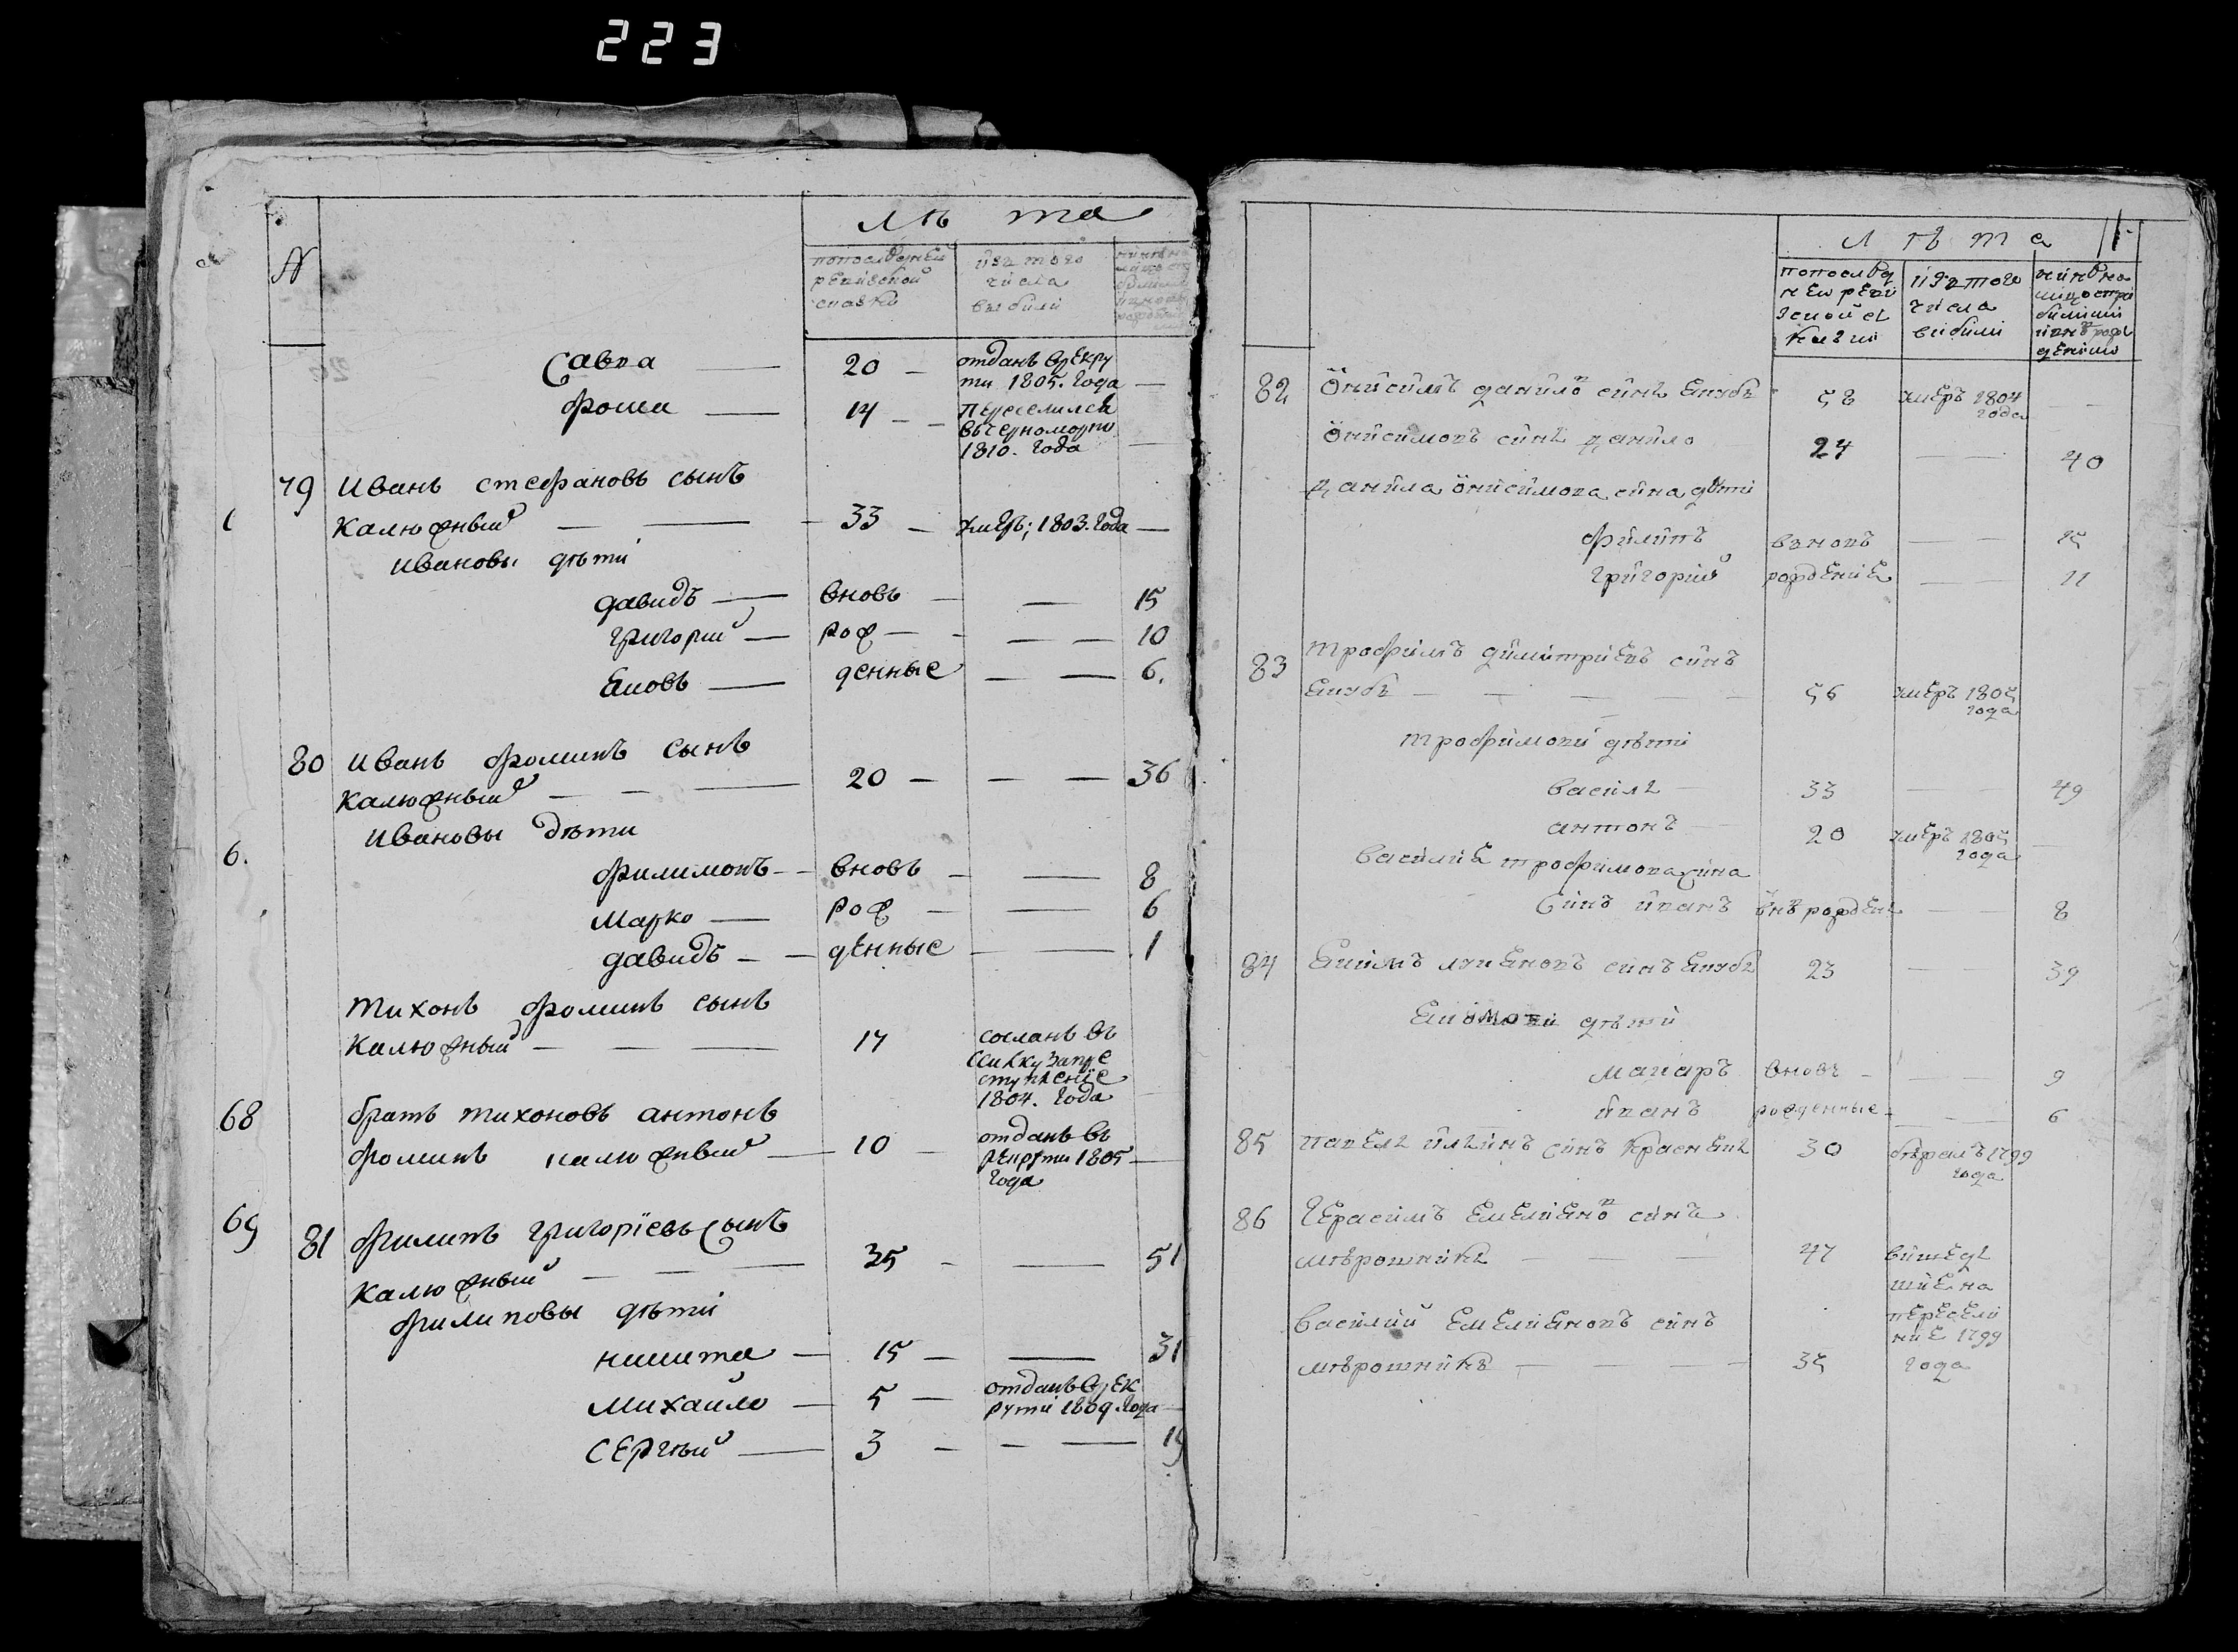 223
лѣта
N
попослѣдней
ревизской
сказки
изъ того
числа
выбыли
Савва — 20 — отданъ врекру
ти 1805. года —
Фома — 14 — переселился
въ черноморию
1810. года —
79 Иванъ стефановъ сынъ
Калюжный — 33 — умеръ; 1803. года —
ивановы дѣти
давидъ — вновь — — 15
григорий — рож — — 10
Яковъ — денные — — 6.
80 Иванъ фоминъ сынъ
Калюжный — 20 — — 36
Ивановы дѣти
6.
филимонъ — вновь — — 8
Марко — рож — — 6
давидъ — денные — — 1
Тихонъ фоминъ сынъ
Калюжный — 17 сосланъ въ
ссилку запре
ступленїе
1804. года
68 братъ тихоновъ антонъ
фоминъ калюжный — 10 — отданъ въ
рекрути 1805 —
года
69 81 филипъ григорїевъ сынъ
Калюжный — 35 — — 51
филиповы дѣти
никита — 15 — — 31
Михайло — 5 — отданъ врек
рути 1809 года —
Сергѣй — 3 — — 19
лѣта
попослѣд
ней реви
зской с
казки
изъ того
числа
вибили
82 Онисимъ данилов синъ Якубъ 58 умеръ 1804
года
Онисимовъ синъ данило 24 — 40
данила онисимова сина дѣти
филипъ вновъ — 15
григорий рожденiе — 11
83 трофимъ димитриевъ синъ
Якубъ — 56 умеръ 1805
года
трофимови дѣти
василь — 33 — 49
антонъ — 20 умеръ 1805
года —
василия трофимова сина
Синъ иванъ внѣ рожден — 8
84 Якимъ лукяновъ синъ Якубъ 23 — 39
Якимови дѣти
макаръ вновъ — 9
иванъ рожденные — 6
85 павелъ илинъ синъ Красняк 30 бѣжалъ 1799
года
86 Герасимъ Емелиянов синъ
мѣрошникъ — 47 вишед
шие на
Василий Емелияновъ синъ
пересели
ние 1799
мѣрошникъ — 35 года